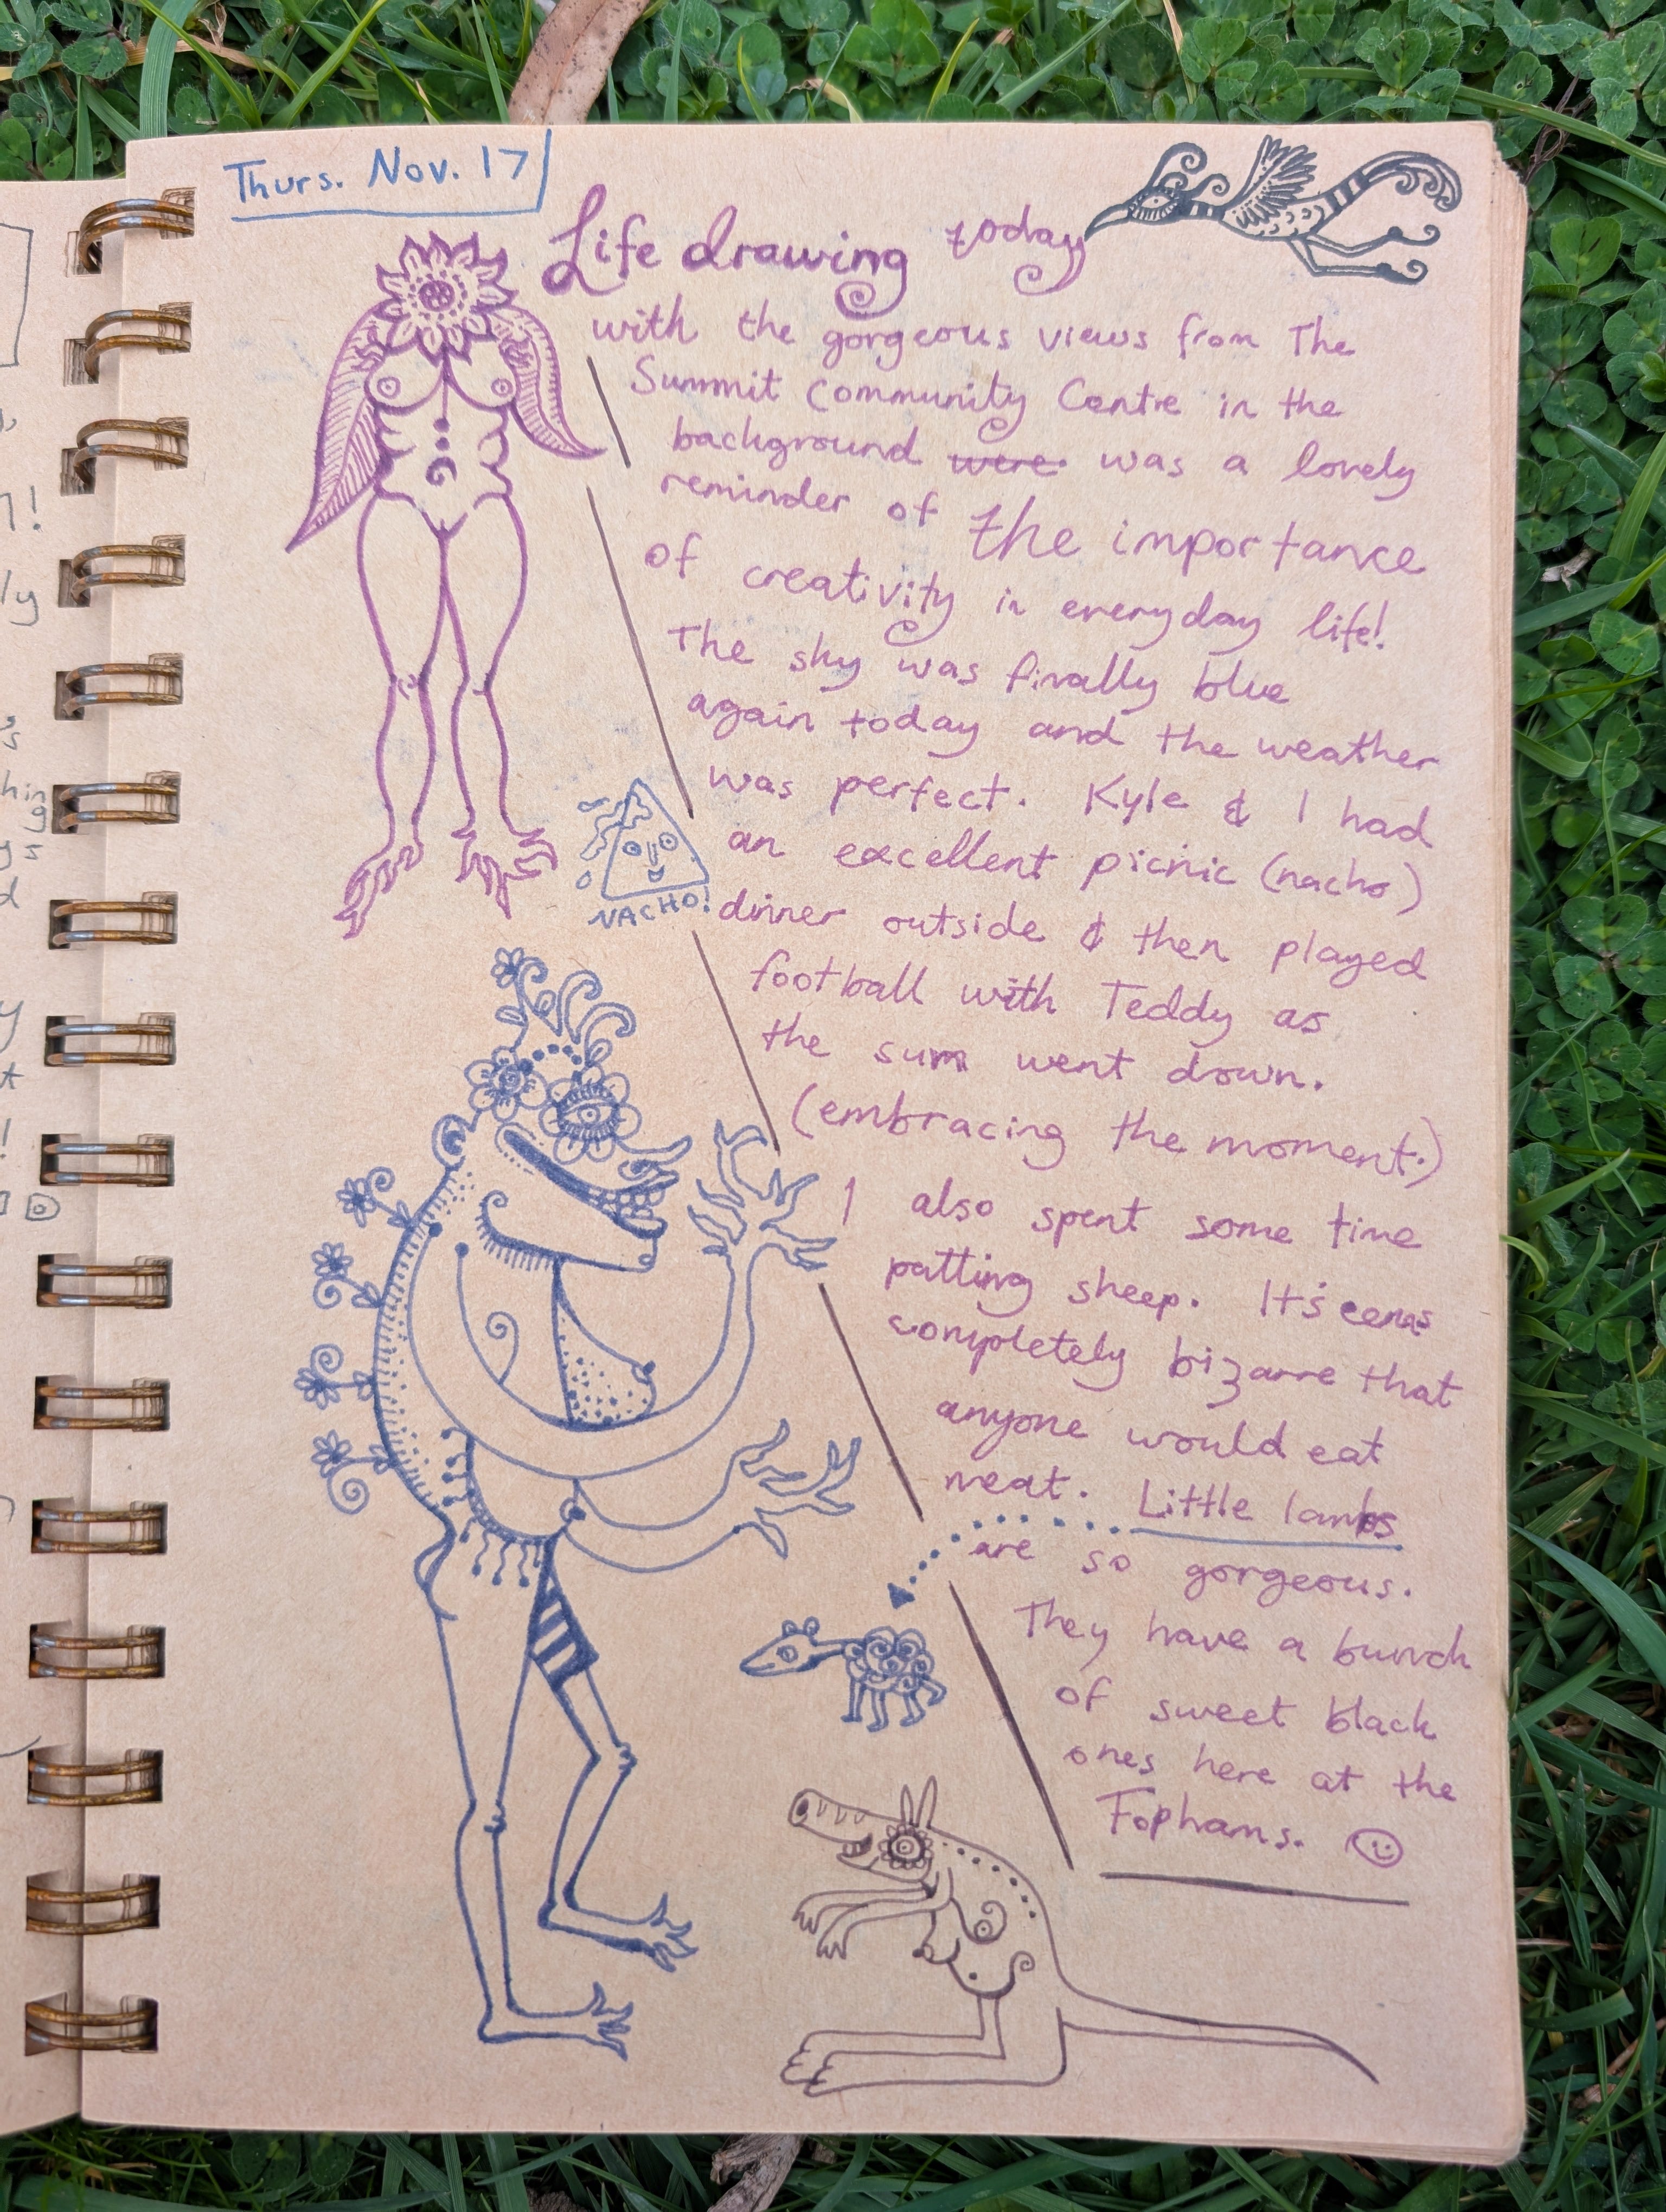 Thurs. Nov. 17
Life drawing today
with the gorgeous views from The
Summit Community Centre in the
background were was a lovely
reminder of the importance
of creativity in everyday life!
The sky was finally blue
again today and the weather
was perfect. Kyle & I had
an excellent picnic (nacho)
NACHO!
dinner outside & then played
football with Teddy as
the sun went down.
(embracing the moment.)
I also spent some time
patting sheep. It
completely bizarre that
anyone would eat
meat. Little lambs
are so gorgeous.
They have a bunch
of sweet black
ones here at the
Fophams.
n!
ly
's
hing
gs
d
y
t
!